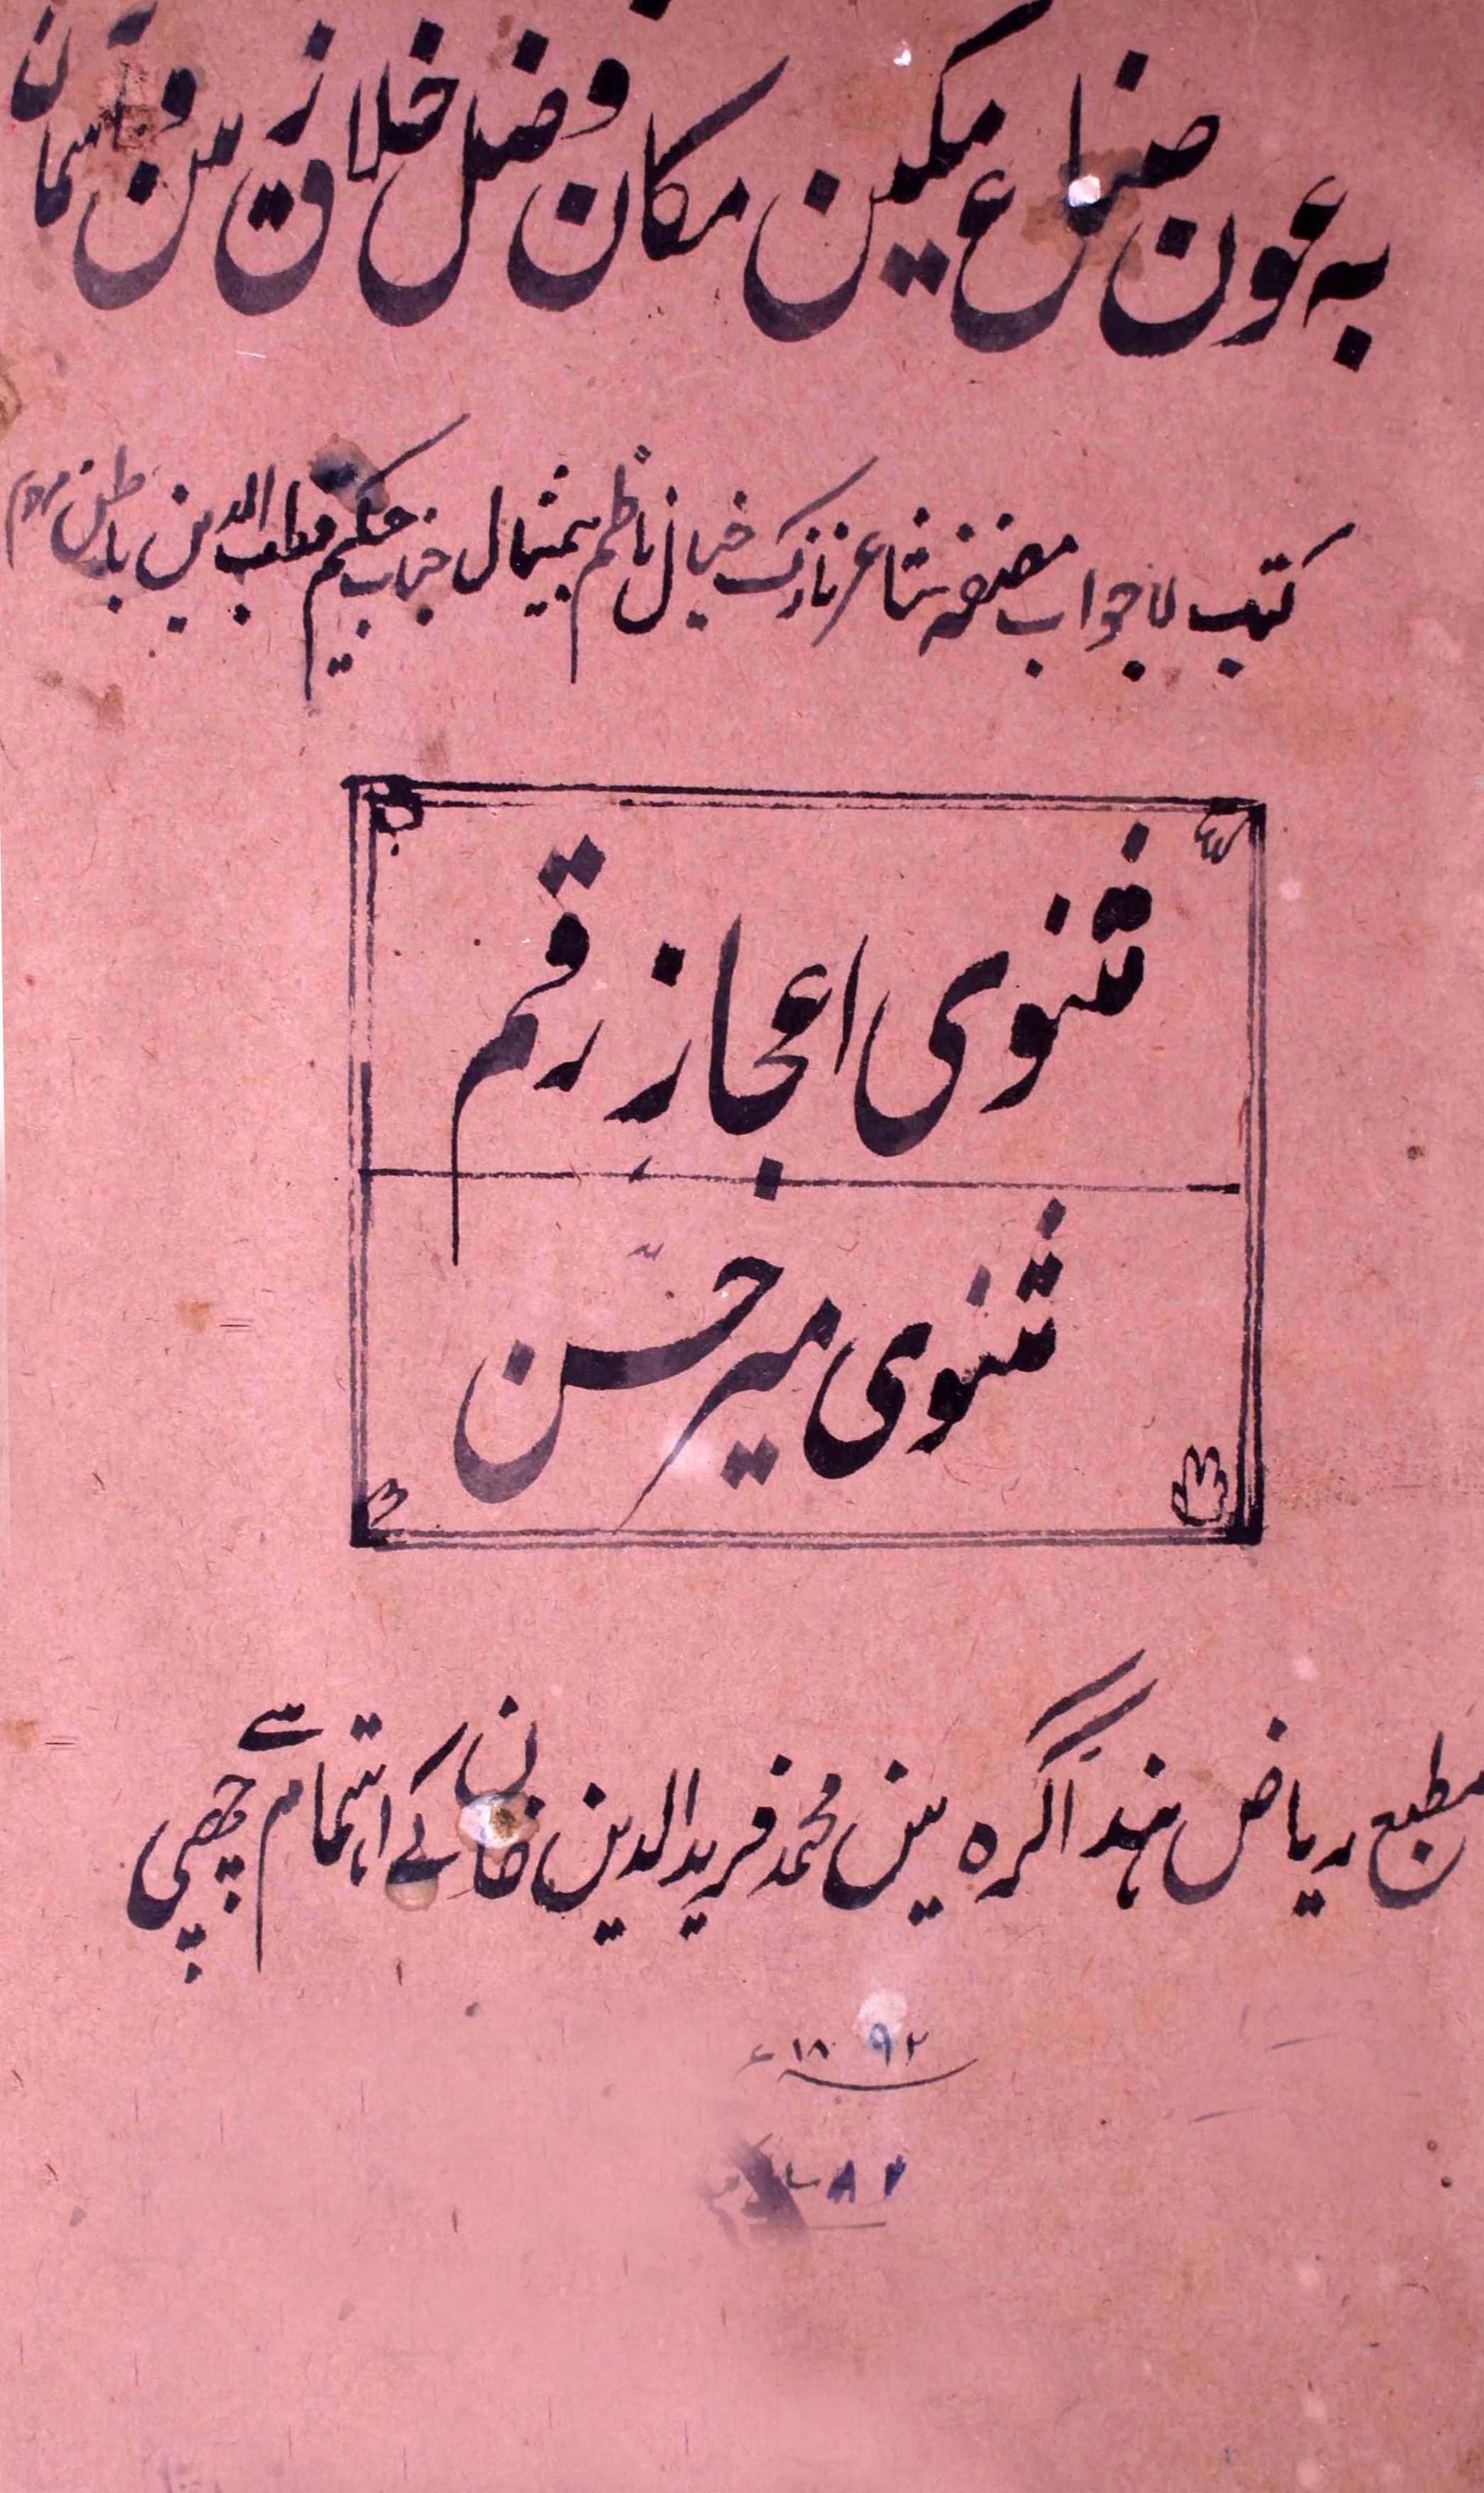 به عون صناع مکین مکان و فضل خلاق زمین و آسمان
کتب لاجواب مصنفہ شاعر نازک خیال ناظم بیمثال جناب حکیم قطب الدین باطن مرحوم
مثنوی اعجاز رقم
مثنوی میر حسن
مطبع ریاض ہند آگرہ مین محمد فریدالدین خان کے اہتمام سے چھپی
۱۸۹۲ء